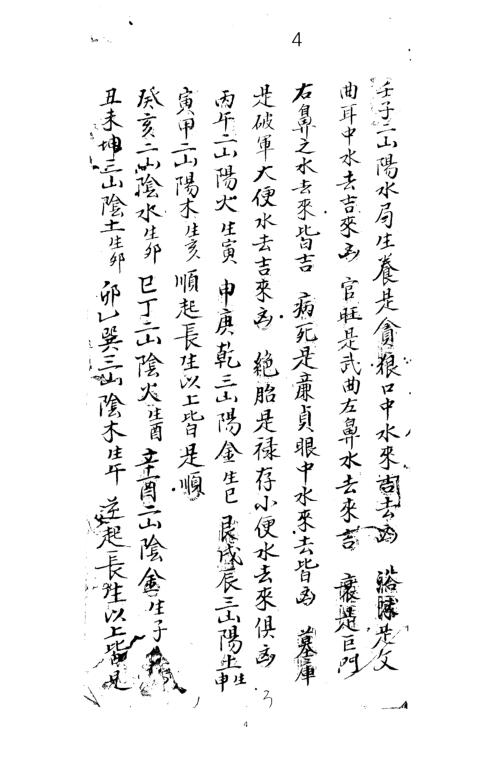 4
壬子二山陽水局生養是貪狼口中水來吉去凶 浴 是文
曲耳中水去吉來凶 官旺是武曲左鼻水去來吉 衰是巨門
右鼻之水去來皆吉 病死是廉貞眼中水來去皆凶 墓庫
是破軍大便水去吉來凶 絕胎是祿存小便水去來俱凶
丙午二山陽火生寅 申庚乾三山陽金生巳 艮戌辰三山陽土生申
寅甲二山陽木生亥 順起長生以上皆是順
癸亥二山陰水生卯 巳丁二山陰火生酉 辛酉二山陰金生子
丑未坤三山陰土生卯 卯乙巽三山陰木生午 逆起長生以上皆是
3
4